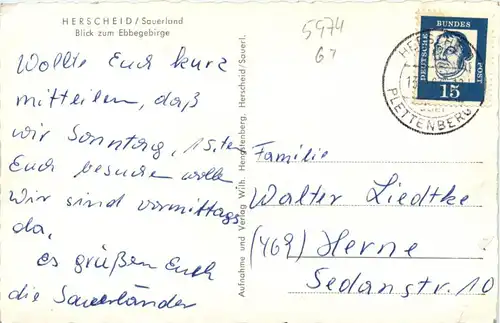 HERSCHEID/Sauerland
Blick zum Ebbegebirge
5974
67
Wollte Euch kurz
mitteilen, daß
wir Sonntag, 15ten
Euch besuchen wollen.
Wir sind vormittags
da.
es grüßen Euch
die Sauerländer
Aufnahme und Verlag Wilh. Hengstenberg, Herscheid/Sauerl.
DEUTSCHE
BUNDES
POST
15
PLETTENBERG
Familie
Walter Liedtke
(469) Herne
Sedanstr. 10